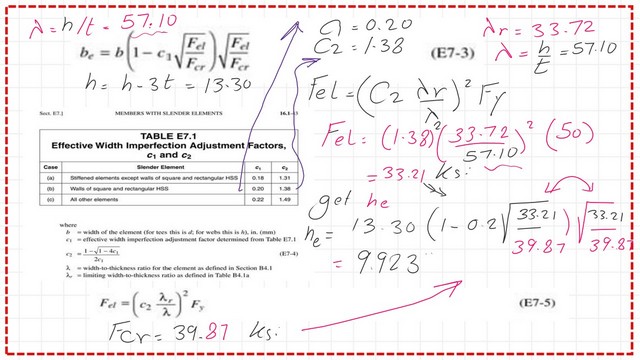 λ = h/t = 57.10
b_e = b(1 − c_1 √(F_el/F_cr)) √(F_el/F_cr)
(E7-3)
h = h − 3t = 13.30
C1 = 0.20
C2 = 1.38
λr = 33.72
λ = h/t = 57.10
Sect. E7.]
MEMBERS WITH SLENDER ELEMENTS
16.1-43
TABLE E7.1
Effective Width Imperfection Adjustment Factors,
c1 and c2
Case Slender Element c1 c2
(a) Stiffened elements except walls of square and rectangular HSS 0.18 1.31
(b) Walls of square and rectangular HSS 0.20 1.38
(c) All other elements 0.22 1.49
Fel = (C2 λr/λ)² Fy
Fel = (1.38)² (33.72/57.10)² (50)
= 33.21 ksi
get he
he = 13.30 (1 − 0.2 √(33.21/39.87)) √(33.21/39.87)
= 9.923
where
b = width of the element (for tees this is d; for webs this is h), in. (mm)
c1 = effective width imperfection adjustment factor determined from Table E7.1
c2 = (1 − √(1 − 4c1))/(2c1) (E7-4)
λ = width-to-thickness ratio for the element as defined in Section B4.1
λr = limiting width-to-thickness ratio as defined in Table B4.1a
F_el = (c_2 λ_r/λ)² F_y
(E7-5)
Fcr = 39.87 ksi